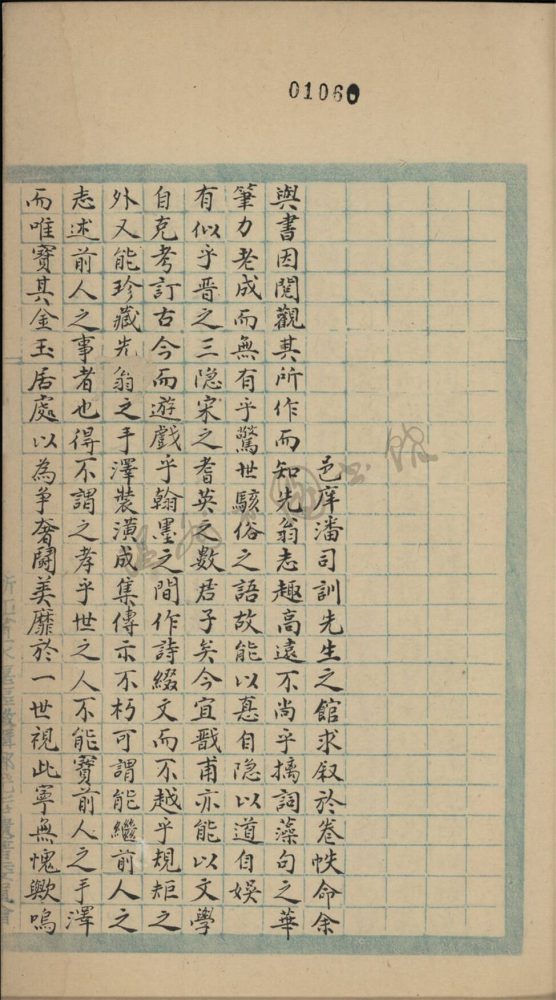 01060
邑庠潘司訓先生之館求叙於卷帙命余
與書因閲觀其所作而知先翁志趣高遠不尚乎摛詞藻句之華
筆力老成而無有乎驚世駭俗之語故能以惪自隐以道自娱
有似乎晋之三隐宋之耆英之數君子矣今宜戩甫亦能以文學
自克考訂古今而遊戲乎翰墨之間作詩綴文而不越乎規矩之
外又能珍藏先翁之手澤裝潢成集傳示不朽可謂能繼前人之
志述前人之事者也得不謂之孝乎世之人不能寶前人之手澤
而唯寶其金玉居處以為争奢鬪美靡於一世視此寧無愧歟嗚